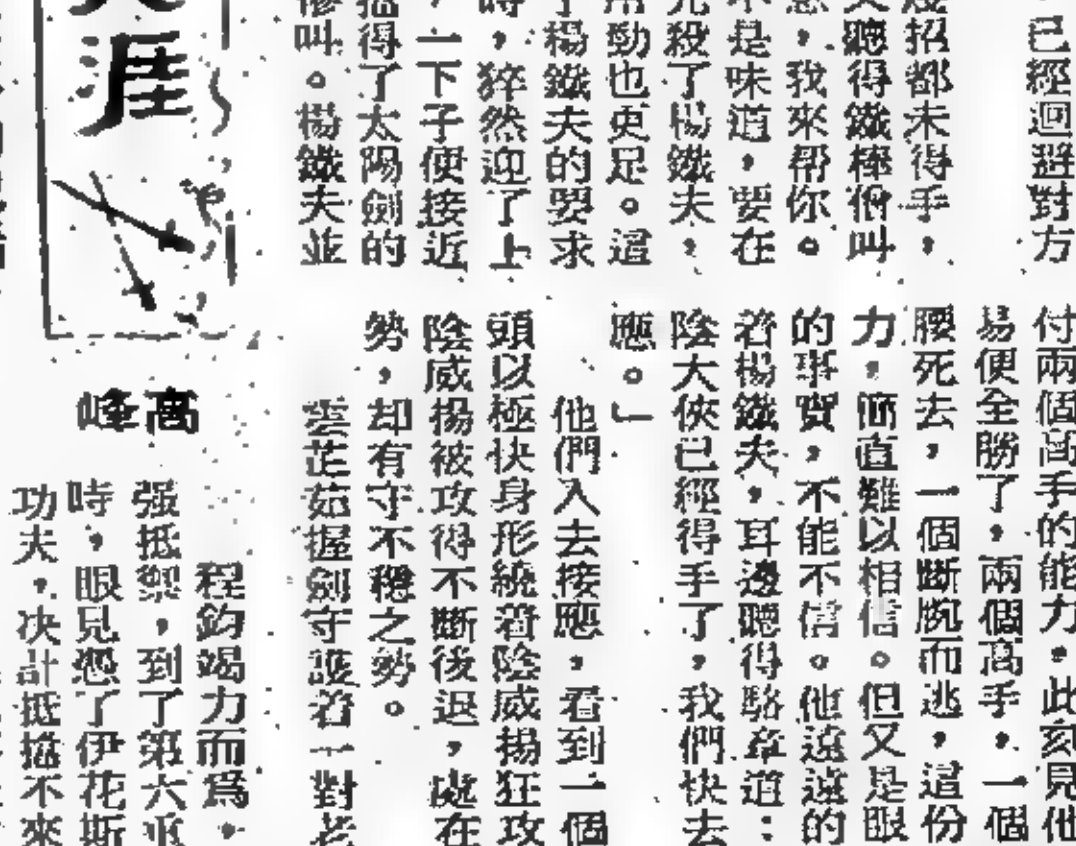 已經迴避對方
招都未得手，
聽得鐵棒僧叫
，我來帮你。
是味道，要在
殺了楊鐵夫，
勁也更足。這
楊鐵夫的要求
時，猝然迎了上
，一下子便接近
得了太陽劍的
慘叫。楊鐵夫並
付兩個高手的能力，此刻見他
易便全勝了，兩個高手，一個
腰死去，一個斷腕而逃，這份
力，簡直難以相信。但又是眼
的事實，不能不信。他遠遠的
着楊鐵夫，耳邊聽得駱章道：
陰大俠已經得手了，我們快去
應。」
他們入去接應，看到一個
頭以極快身形繞着陰威揚狂攻
陰威揚被攻得不斷後退，處在
勢，却有守不穩之勢。
雲芷茹握劍守護着一對老
涯
高峰
程鈞竭力而爲，
强抵禦，到了第六重
時，眼見怨了伊花斯
功夫，决計抵擋不來